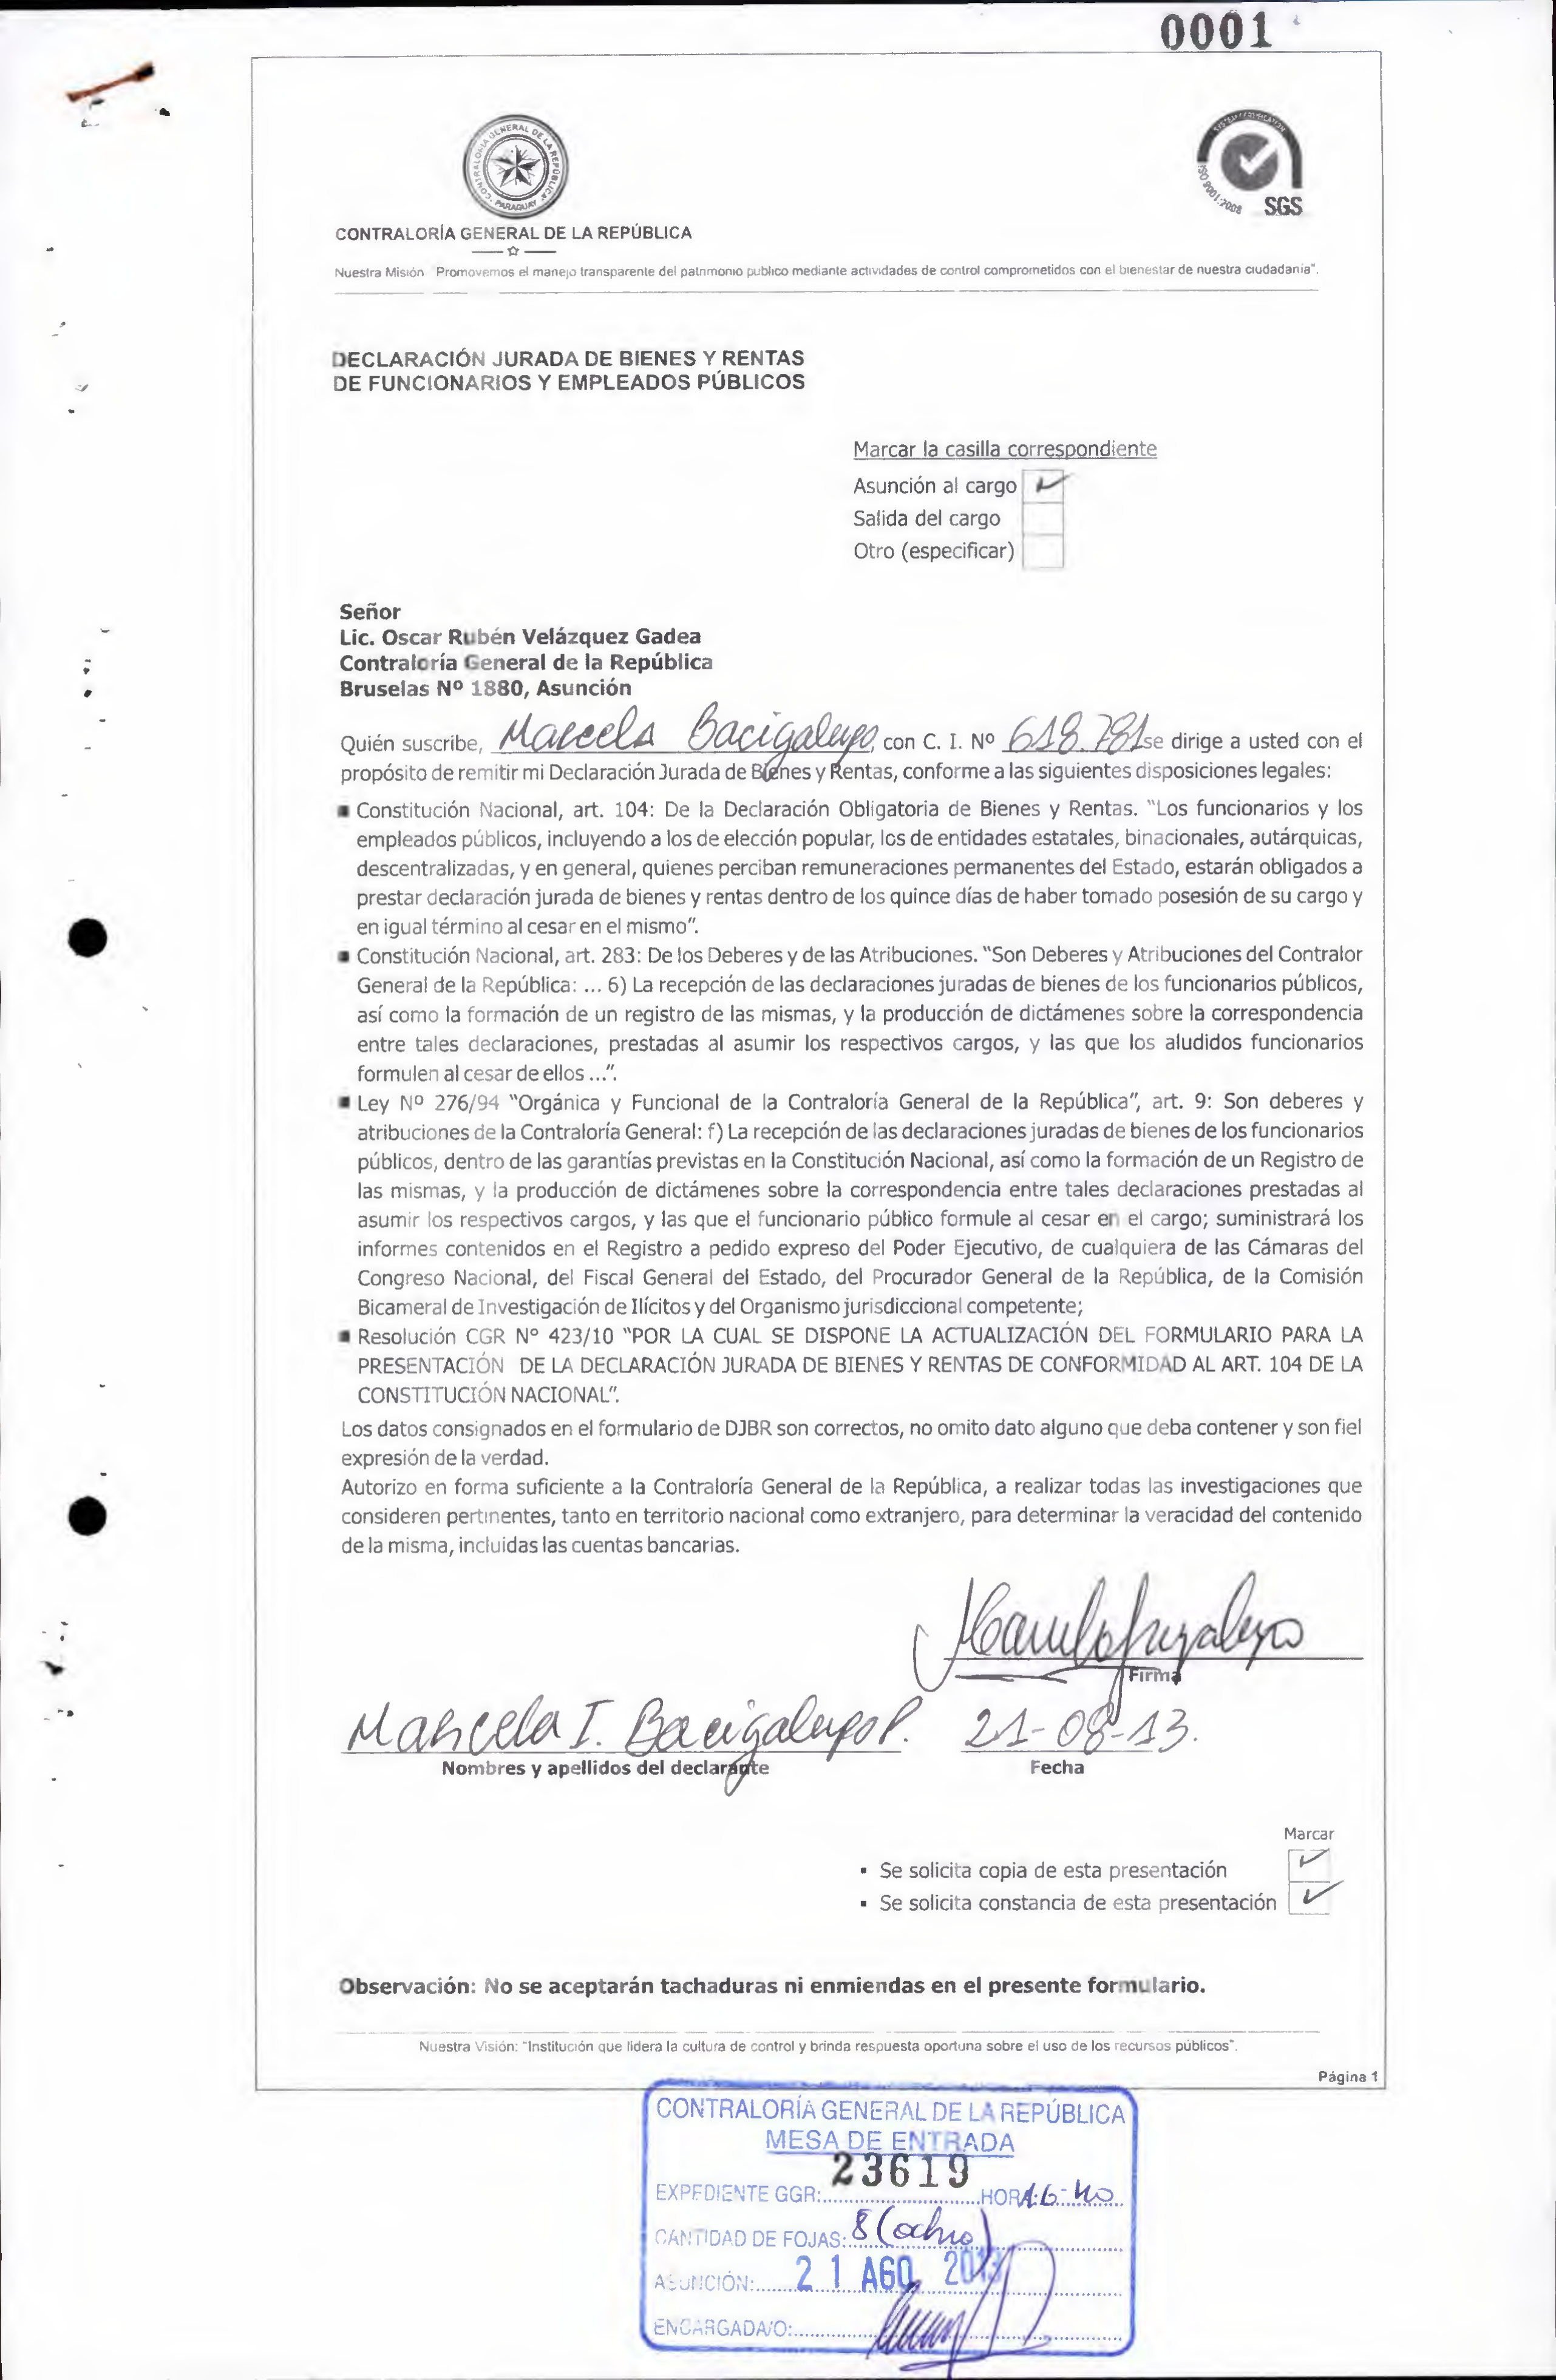 0001
CONTRALORÍA GENERAL DE LA REPÚBLICA
PARAGUAY
SYSTEM CERTIFICATION
ISO 9001:2008
SGS
CONTRALORÍA GENERAL DE LA REPÚBLICA
Nuestra Misión "Promovemos el manejo transparente del patrimonio publico mediante actividades de control comprometidos con el bienestar de nuestra ciudadanía".
DECLARACIÓN JURADA DE BIENES Y RENTAS
DE FUNCIONARIOS Y EMPLEADOS PÚBLICOS
Marcar la casilla correspondiente
Asunción al cargo ✓
Salida del cargo
Otro (especificar)
Señor
Lic. Oscar Rubén Velázquez Gadea
Contraloría General de la República
Bruselas Nº 1880, Asunción
Quién suscribe, Marcela Bacigalupo, con C. I. Nº 618.781 se dirige a usted con el
propósito de remitir mi Declaración Jurada de Bienes y Rentas, conforme a las siguientes disposiciones legales:
▪ Constitución Nacional, art. 104: De la Declaración Obligatoria de Bienes y Rentas. "Los funcionarios y los
empleados públicos, incluyendo a los de elección popular, los de entidades estatales, binacionales, autárquicas,
descentralizadas, y en general, quienes perciban remuneraciones permanentes del Estado, estarán obligados a
prestar declaración jurada de bienes y rentas dentro de los quince días de haber tomado posesión de su cargo y
en igual término al cesar en el mismo".
▪ Constitución Nacional, art. 283: De los Deberes y de las Atribuciones. "Son Deberes y Atribuciones del Contralor
General de la República: ... 6) La recepción de las declaraciones juradas de bienes de los funcionarios públicos,
así como la formación de un registro de las mismas, y la producción de dictámenes sobre la correspondencia
entre tales declaraciones, prestadas al asumir los respectivos cargos, y las que los aludidos funcionarios
formulen al cesar de ellos ...".
▪ Ley Nº 276/94 "Orgánica y Funcional de la Contraloría General de la República", art. 9: Son deberes y
atribuciones de la Contraloría General: f) La recepción de las declaraciones juradas de bienes de los funcionarios
públicos, dentro de las garantías previstas en la Constitución Nacional, así como la formación de un Registro de
las mismas, y la producción de dictámenes sobre la correspondencia entre tales declaraciones prestadas al
asumir los respectivos cargos, y las que el funcionario público formule al cesar en el cargo; suministrará los
informes contenidos en el Registro a pedido expreso del Poder Ejecutivo, de cualquiera de las Cámaras del
Congreso Nacional, del Fiscal General del Estado, del Procurador General de la República, de la Comisión
Bicameral de Investigación de Ilícitos y del Organismo jurisdiccional competente;
▪ Resolución CGR N° 423/10 "POR LA CUAL SE DISPONE LA ACTUALIZACIÓN DEL FORMULARIO PARA LA
PRESENTACIÓN DE LA DECLARACIÓN JURADA DE BIENES Y RENTAS DE CONFORMIDAD AL ART. 104 DE LA
CONSTITUCIÓN NACIONAL".
Los datos consignados en el formulario de DJBR son correctos, no omito dato alguno que deba contener y son fiel
expresión de la verdad.
Autorizo en forma suficiente a la Contraloría General de la República, a realizar todas las investigaciones que
consideren pertinentes, tanto en territorio nacional como extranjero, para determinar la veracidad del contenido
de la misma, incluidas las cuentas bancarias.
Firma
Marcela I. Bacigalupo P. 21-08-13.
Nombres y apellidos del declarante Fecha
Marcar
▪ Se solicita copia de esta presentación ✓
▪ Se solicita constancia de esta presentación ✓
Observación: No se aceptarán tachaduras ni enmiendas en el presente formulario.
Nuestra Visión: "Institución que lidera la cultura de control y brinda respuesta oportuna sobre el uso de los recursos públicos".
Página 1
CONTRALORÍA GENERAL DE LA REPÚBLICA
MESA DE ENTRADA
23619
EXPEDIENTE GGR: HORA: 16-40
CANTIDAD DE FOJAS: 8 (ocho)
ASUNCIÓN: 21 AGO 2013
ENCARGADA/O: